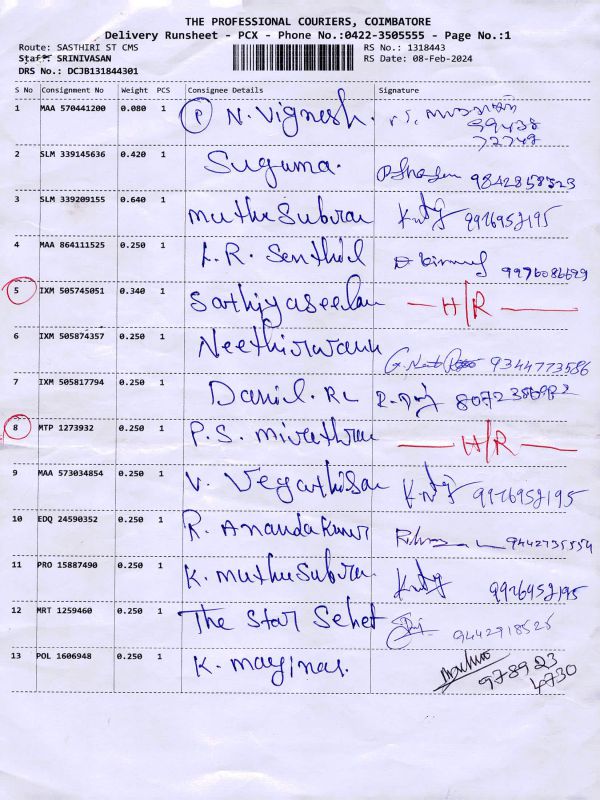 THE PROFESSIONAL COURIERS, COIMBATORE
Delivery Runsheet - PCX - Phone No.:0422-3505555 - Page No.:1
Route: SASTHIRI ST CMS RS No.: 1318443
Staff: SRINIVASAN RS Date: 08-Feb-2024
DRS No.: DCJB131844301
S No Consignment No Weight PCS Consignee Details Signature
1 MAA 570441200 0.080 1 P N. Vignesh.
99438
72748
2 SLM 339145636 0.420 1 Suguma. 9842858323
3 SLM 339209155 0.640 1 muthu Subira
4 MAA 864111525 0.250 1 L.R. Senthil 9976086699
5 IXM 505745051 0.340 1 Sathiyaseelan — H/R —
6 IXM 505874357 0.250 1 9344773586
7 IXM 505817794 0.250 1 Daniel. RL
8 MTP 1273932 0.250 1 P.S. — H/R —
9 MAA 573034854 0.250 1 V.
10 EDQ 24590352 0.250 1 R. Ananda Kumar 9442735554
11 PRO 15887490 0.250 1 K. muthu Subira
12 MRT 1259460 0.250 1 The Star Sehet 9442918525
13 POL 1606948 0.250 1 K. 978923
4730